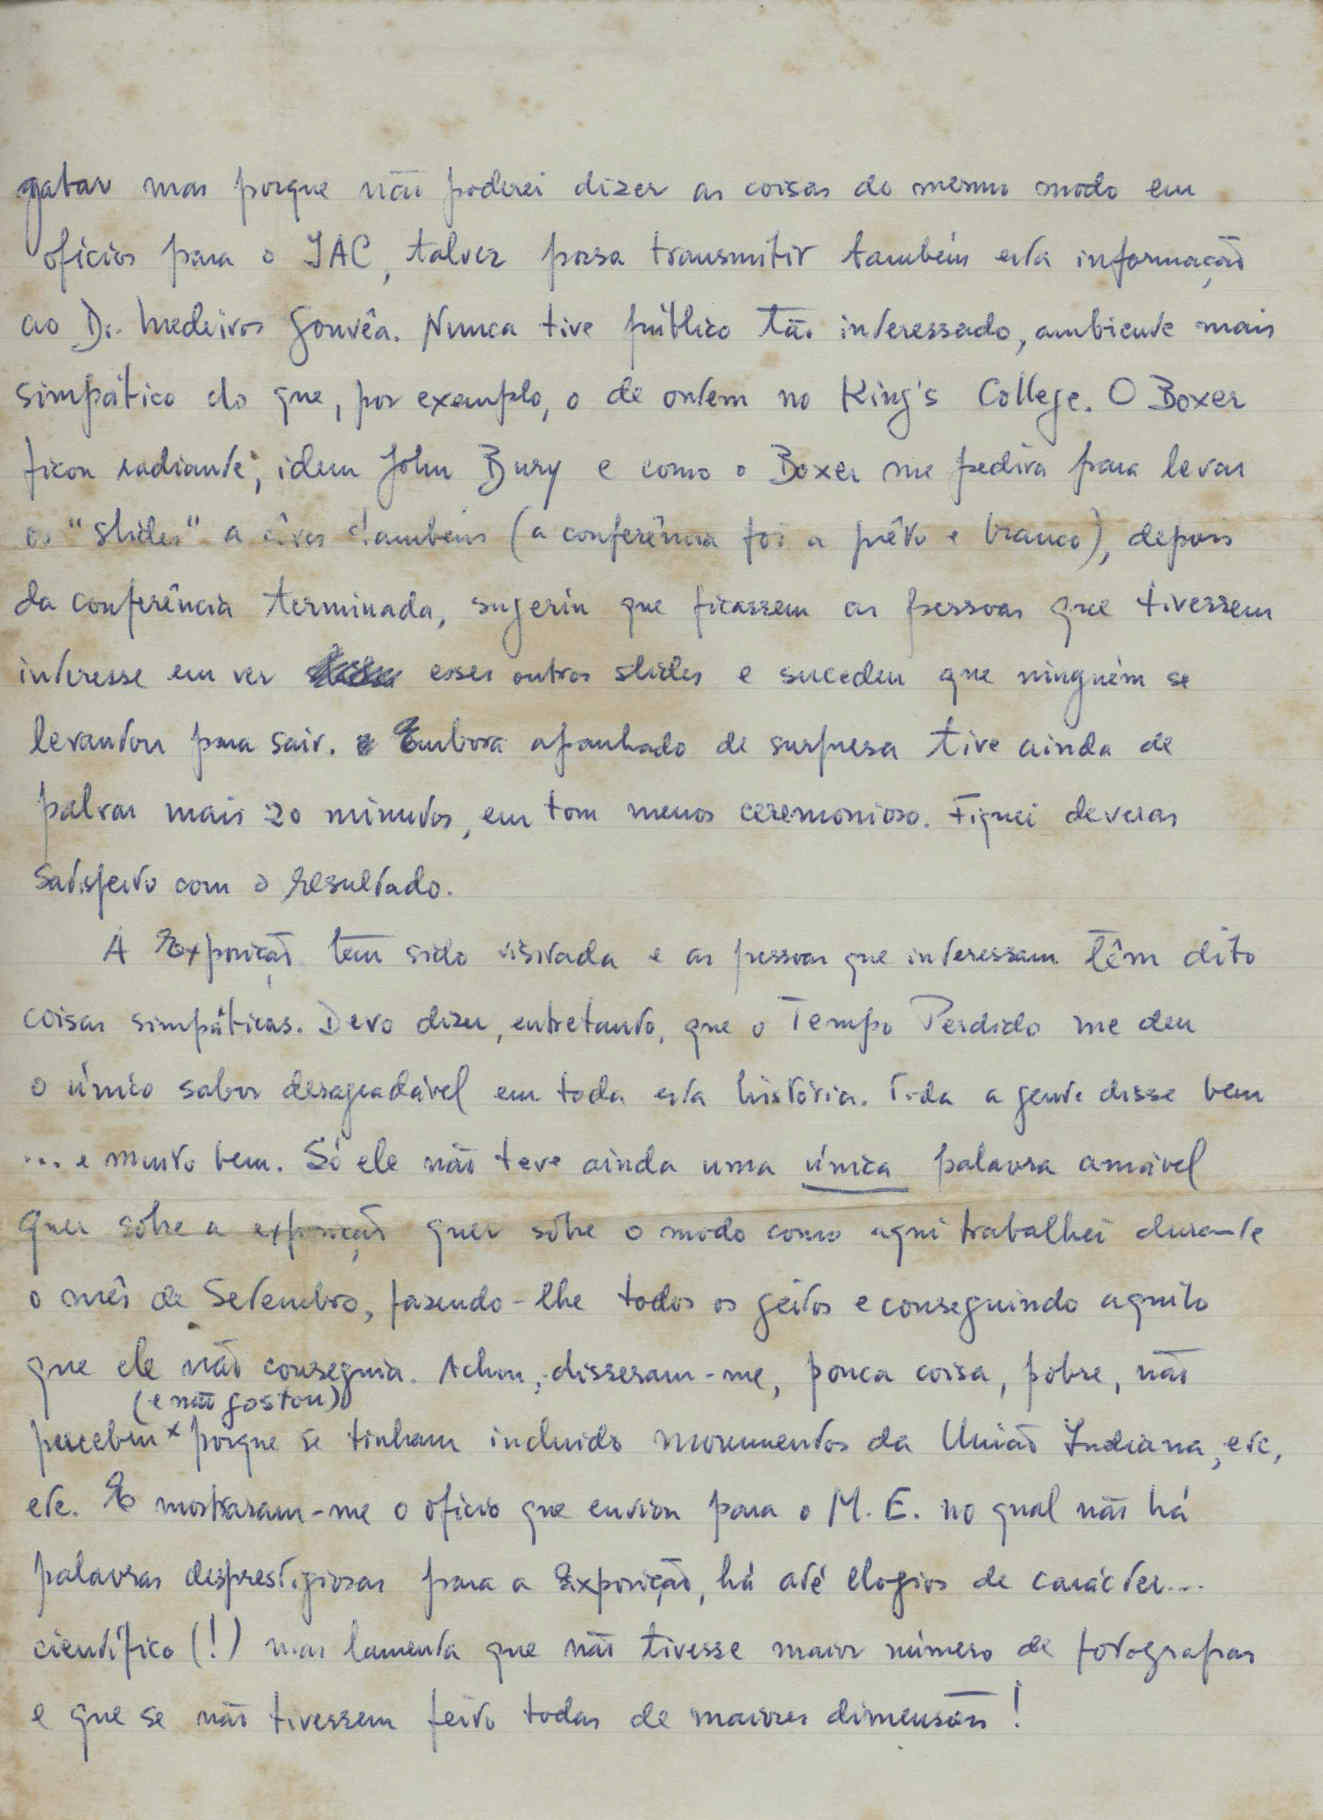 gabar mas porque não poderei dizer as coisas do mesmo modo em
ofícios para o IAC, talvez possa transmitir também esta informação
ao Dr. Medeiros Gouvêa. Nunca tive público tão interessado, ambiente mais
simpático do que, por exemplo, o de ontem no King's College. O Boxer
ficou radiante, idem John Bury e como o Boxer me pedira para levar
os "slides" a côres também (a conferência foi a prêto e branco), depois
da conferência terminada, sugeriu que ficassem as pessoas que tivessem
interesse em ver esses outros slides e sucedeu que ninguém se
levantou para sair. Embora apanhado de surpresa tive ainda de
palrar mais 20 minutos, em tom menos ceremonioso. Fiquei deveras
satisfeito com o resultado.
A Exposição tem sido visitada e as pessoas que interessam têm dito
coisas simpáticas. Devo dizer, entretanto, que o Tempo Perdido me deu
o único sabor desagradável em toda esta história. Toda a gente disse bem
... e muito bem. Só ele não teve ainda uma única palavra amável
quer sôbre a exposição quer sôbre o modo como aqui trabalhei durante
o mês de Setembro, fazendo-lhe todos os geitos e conseguindo aquilo
que ele não conseguia. Achou, disseram-me, pouca coisa, pobre, não
(e não gostou)
percebeu x porque se tinham incluido monumentos da União Indiana, etc,
etc. E mostraram-me o oficio que enviou para o M. E. no qual não há
palavras desprestigiosas para a Exposição, há até elogios de carácter...
científico (!) mas lamenta que não tivesse maior número de fotografias
e que se não tivessem feito todas de maiores dimensões!